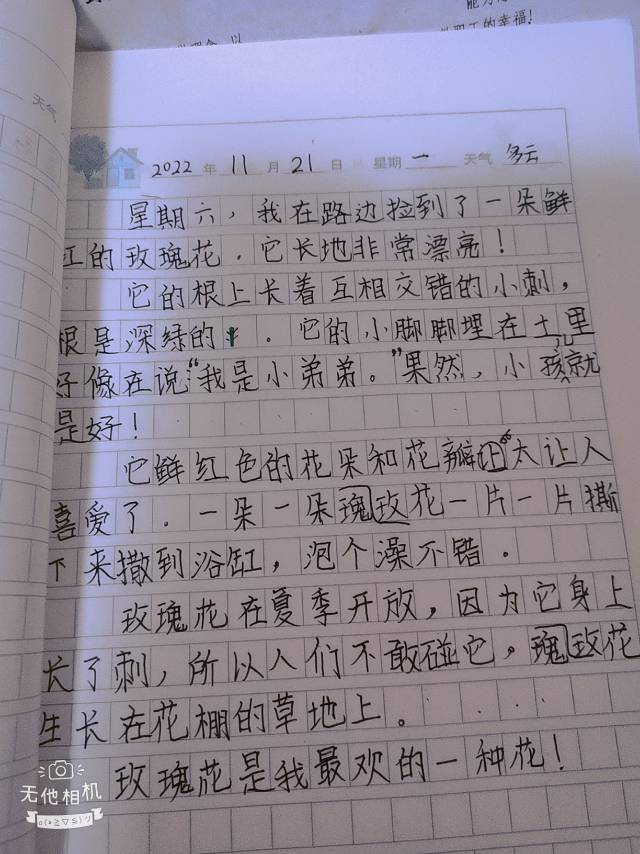 能为
职工的幸福!
天气
2022 年 11 月 21 日 星期 一 天气 多云
星期六，我在路边捡到了一朵鲜
红的玫瑰花．它长地非常漂亮！
它的根上长着互相交错的小刺，
根是深绿的．它的小脚脚埋在土里
好像在说“我是小弟弟。”果然，小孩儿就
是好！
它鲜红色的花朵和花瓣让“太让人
喜爱了．一朵一朵瑰玫花一片一片撕
下来撒到浴缸，泡个澡不错．
玫瑰花在夏季开放，因为它身上
长了刺，所以人们不敢碰它。瑰玫花
生长在花棚的草地上。
玫瑰花是我最欢的一种花！
无他相机